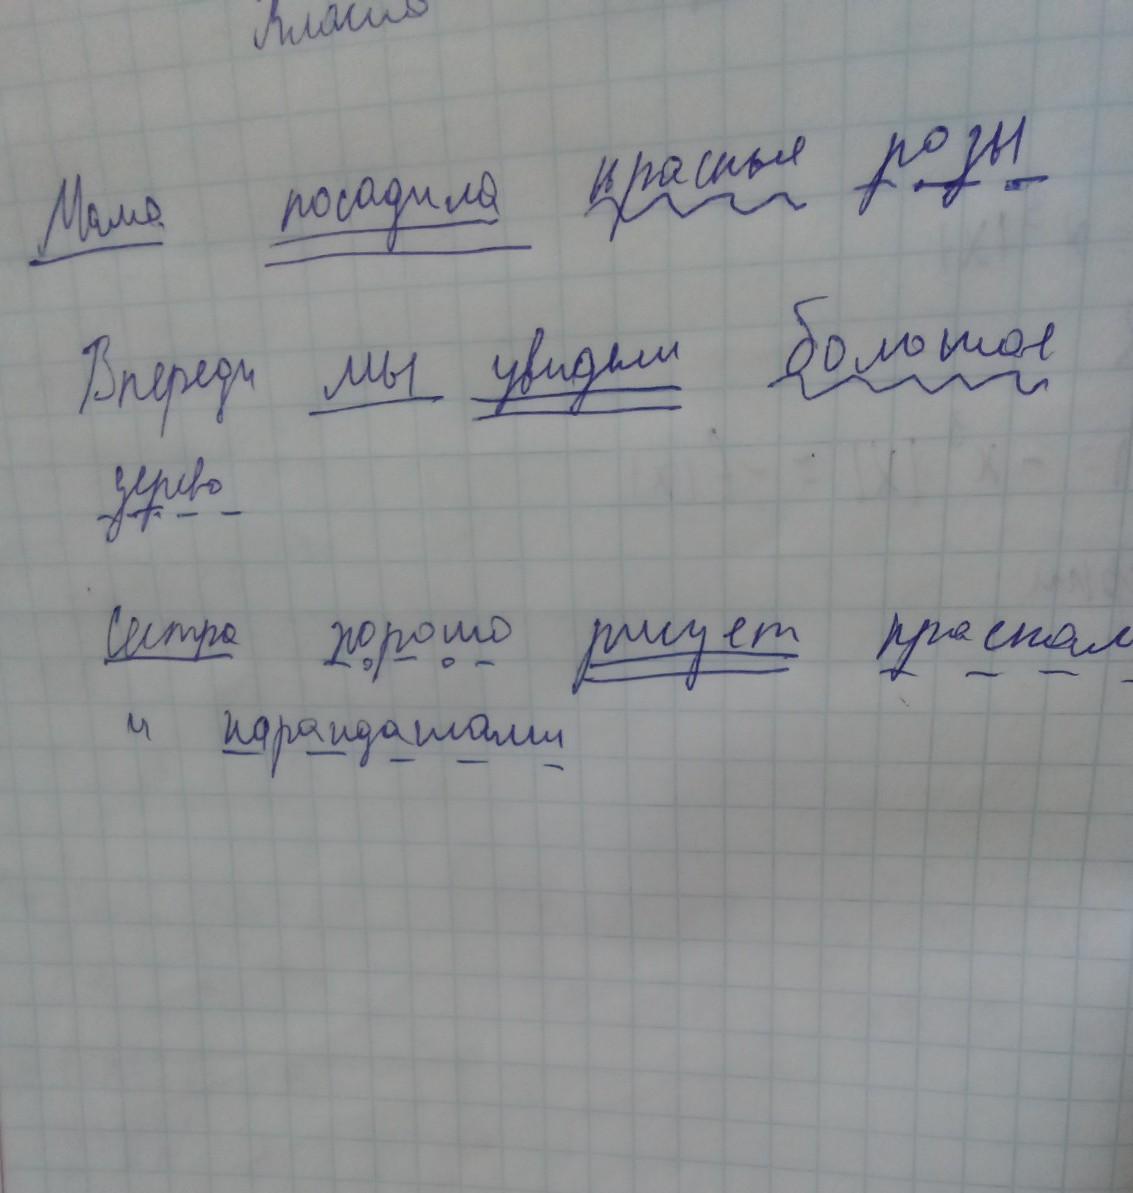 Мама посадила красные розы
Впереди мы увидели большое
дерево
Сестра хорошо рисует краскам
и карандашами